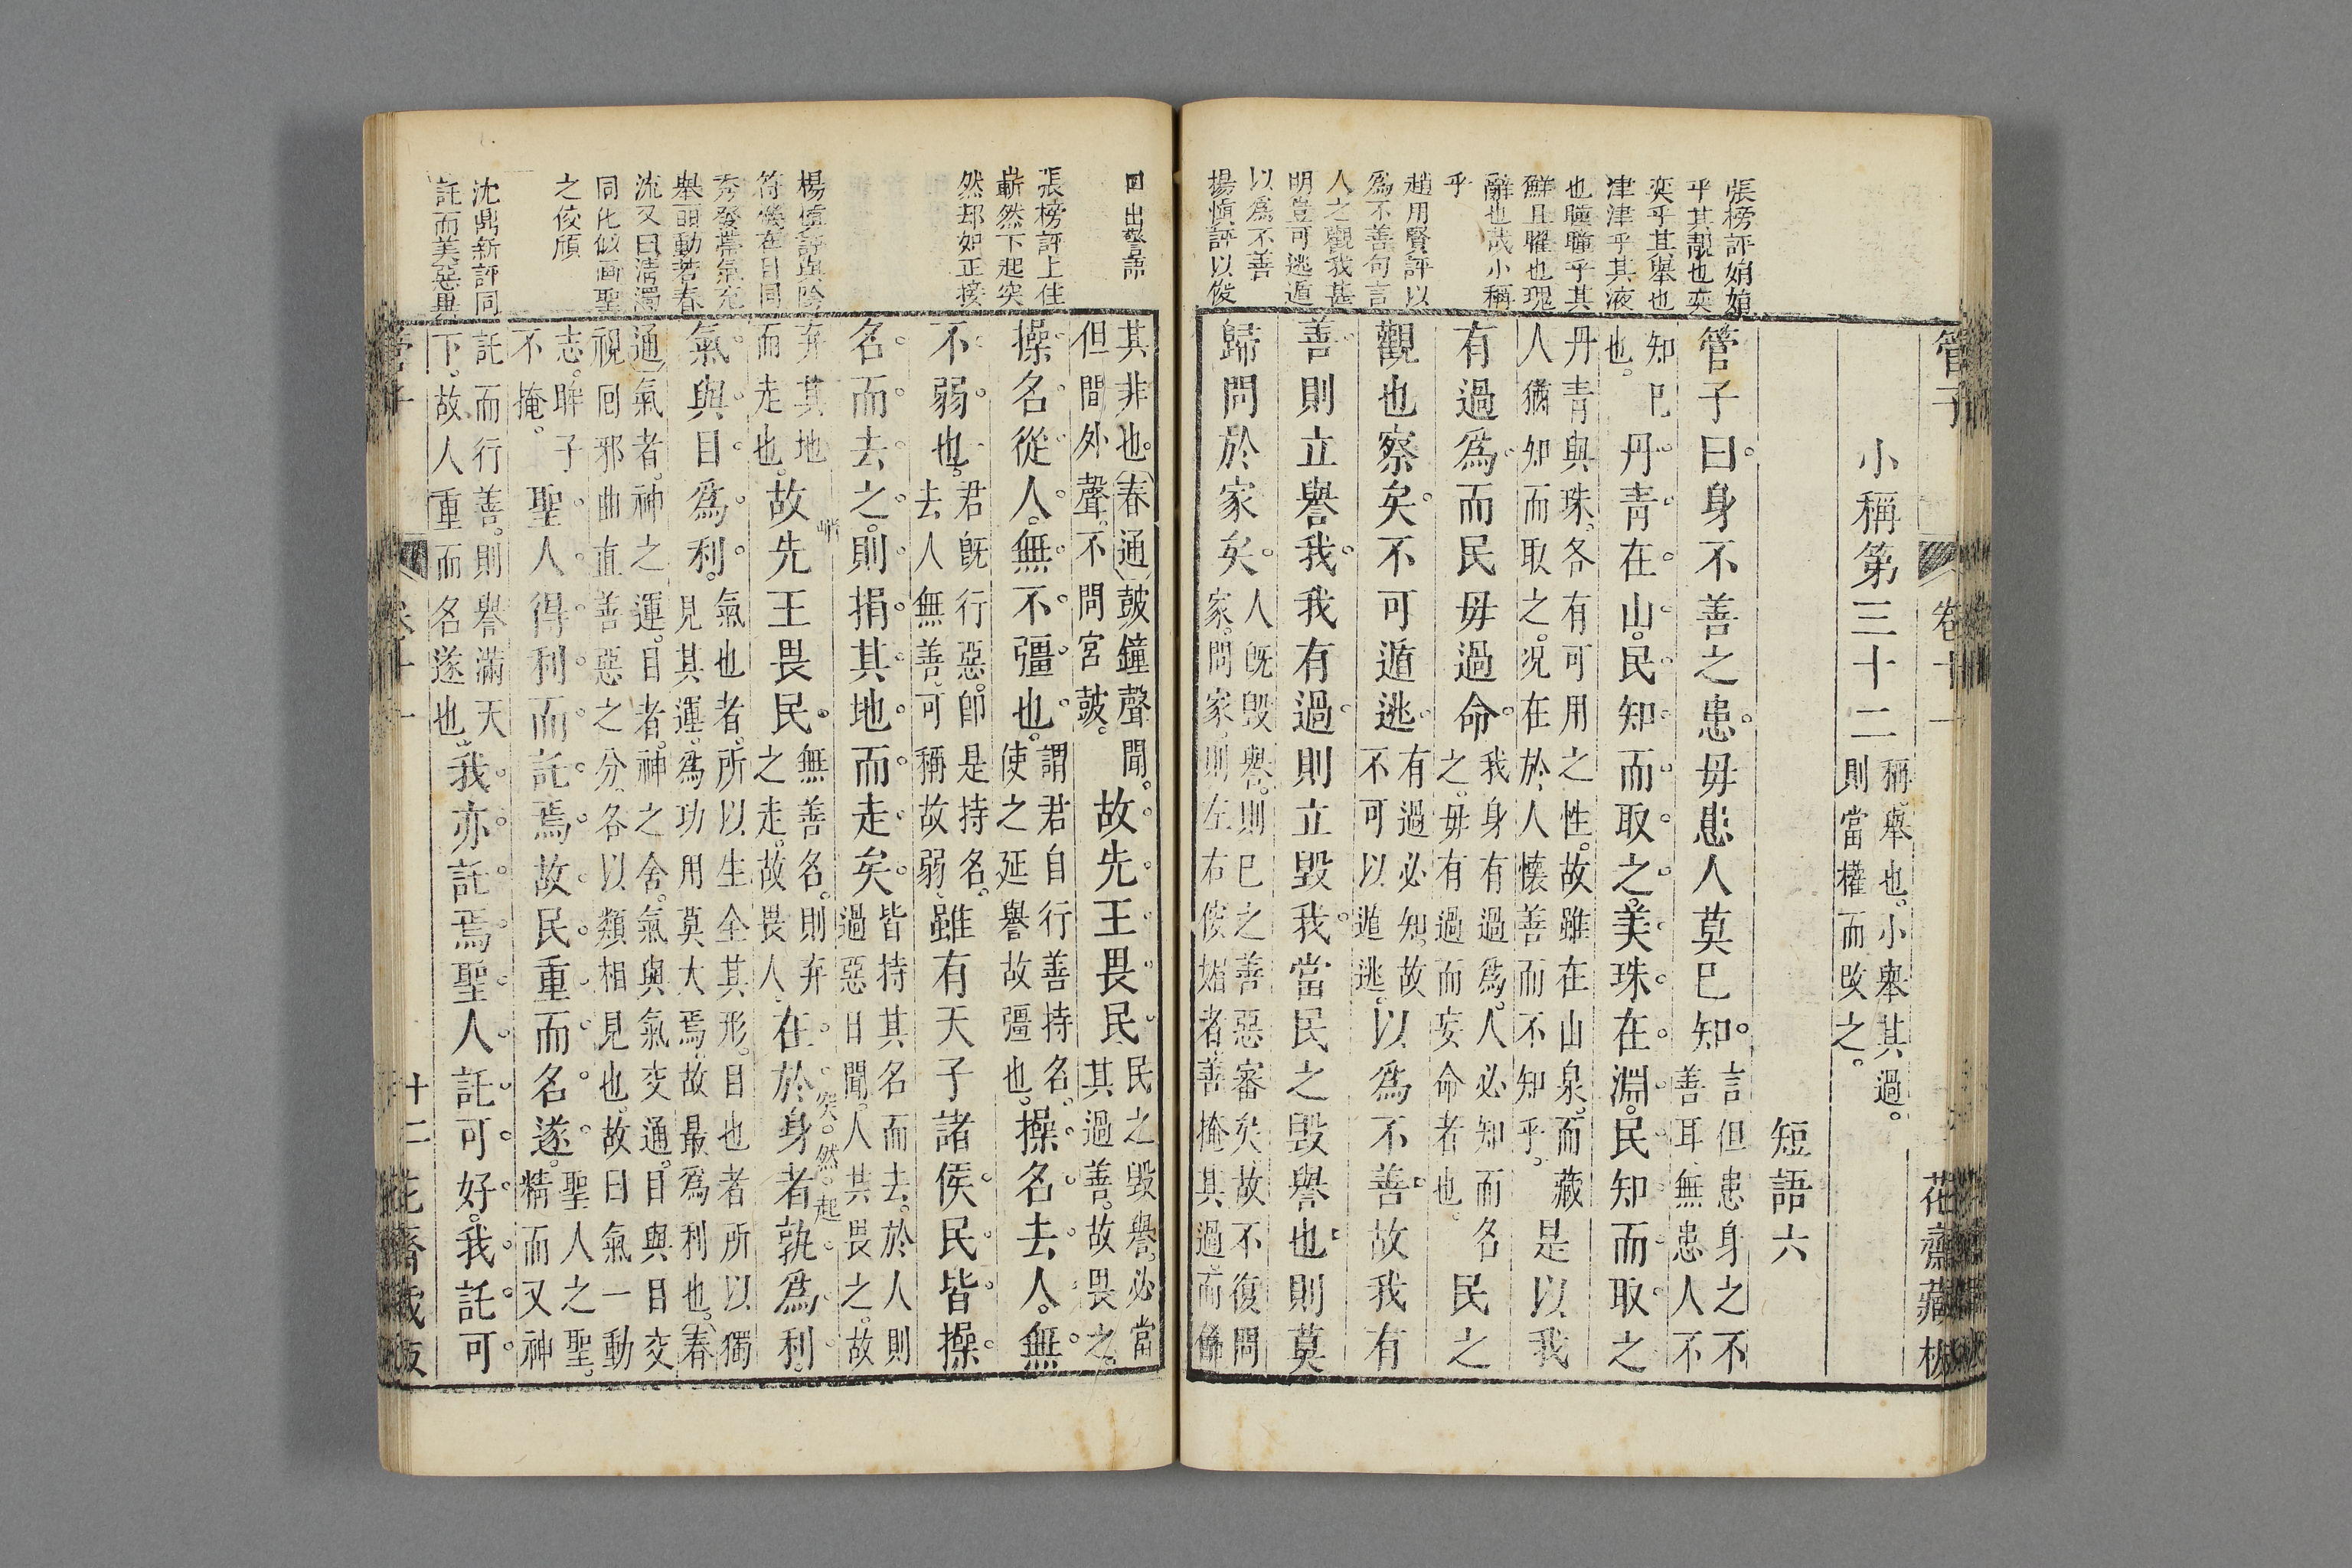 管子
卷十一
花齋藏板
小稱第三十二稱舉也小舉其過
則當權而改之
短語六
管子曰身不善之患毋患人莫已知言但患身之不
善耳無患人不
知已
也丹青在山民知而取之美珠在淵民知而取之
丹青與珠各有可用之性故雖在山泉而藏
人猶知而取之況在於人懷善而不知乎是以我
有過爲而民毋過命我身有過爲人必知而名
之毋有過而妄命者也民之
觀也察矣不可遁逃有過必知故
不可以遁逃以爲不善故我有
善則立譽我我有過則立毀我當民之毀譽也則莫
歸問於家矣人既毀譽則已之善惡審矣故不復問
家問家則左右佞媚者善掩其過而飾
張榜評娟娟
乎其靚也奕
奕乎其舉也
津津乎其液
也瞳瞳乎其
鮮且曜也瑰
辭也哉小稱
乎
趙用賢評以
爲不善句言
人之觀我甚
明豈可逃遁
以爲不善
楊愼評以俊
語
出
其非也春通鼓鐘聲聞
但間外聲不問宮鼓故先王畏民民之毀譽必當
其過善故畏之
操名從人無不彊也謂君自行善持名
使之延譽故彊也操名去人無
不弱也君既行惡卽是持名
去人無善可稱故弱雖有天子諸侯民皆操
名而去之則捐其地而走矣皆持其名而去於人則
過惡日聞人其畏之故
弃其地
而走也故先王畏民無善名則弃
之走故畏人在於身者孰爲利
氣與目爲利氣也者所以生全其形目也者所以獨
見其運爲功用莫大焉故最爲利也春
通氣者神之運目者神之舍氣與氣交通目與目交
視囘邪曲直善惡之分各以類相見也故曰氣一動
志眸子
不掩聖人得利而託焉故民重而名遂聖人之聖
精而又神
託而行善則譽滿天
下故人重而名遂也我亦託焉聖人託可好我託可
張榜評上佳
嶄然下起突
然却如正接
楊愼評與陰
符機在目同
旁發蒂氣充
舉目動若春
流又曰清濁
同化似画聖
之佼頎
沈鼎新評同
託而美惡異
突然起
管子
卷十一
十二
花齋藏板